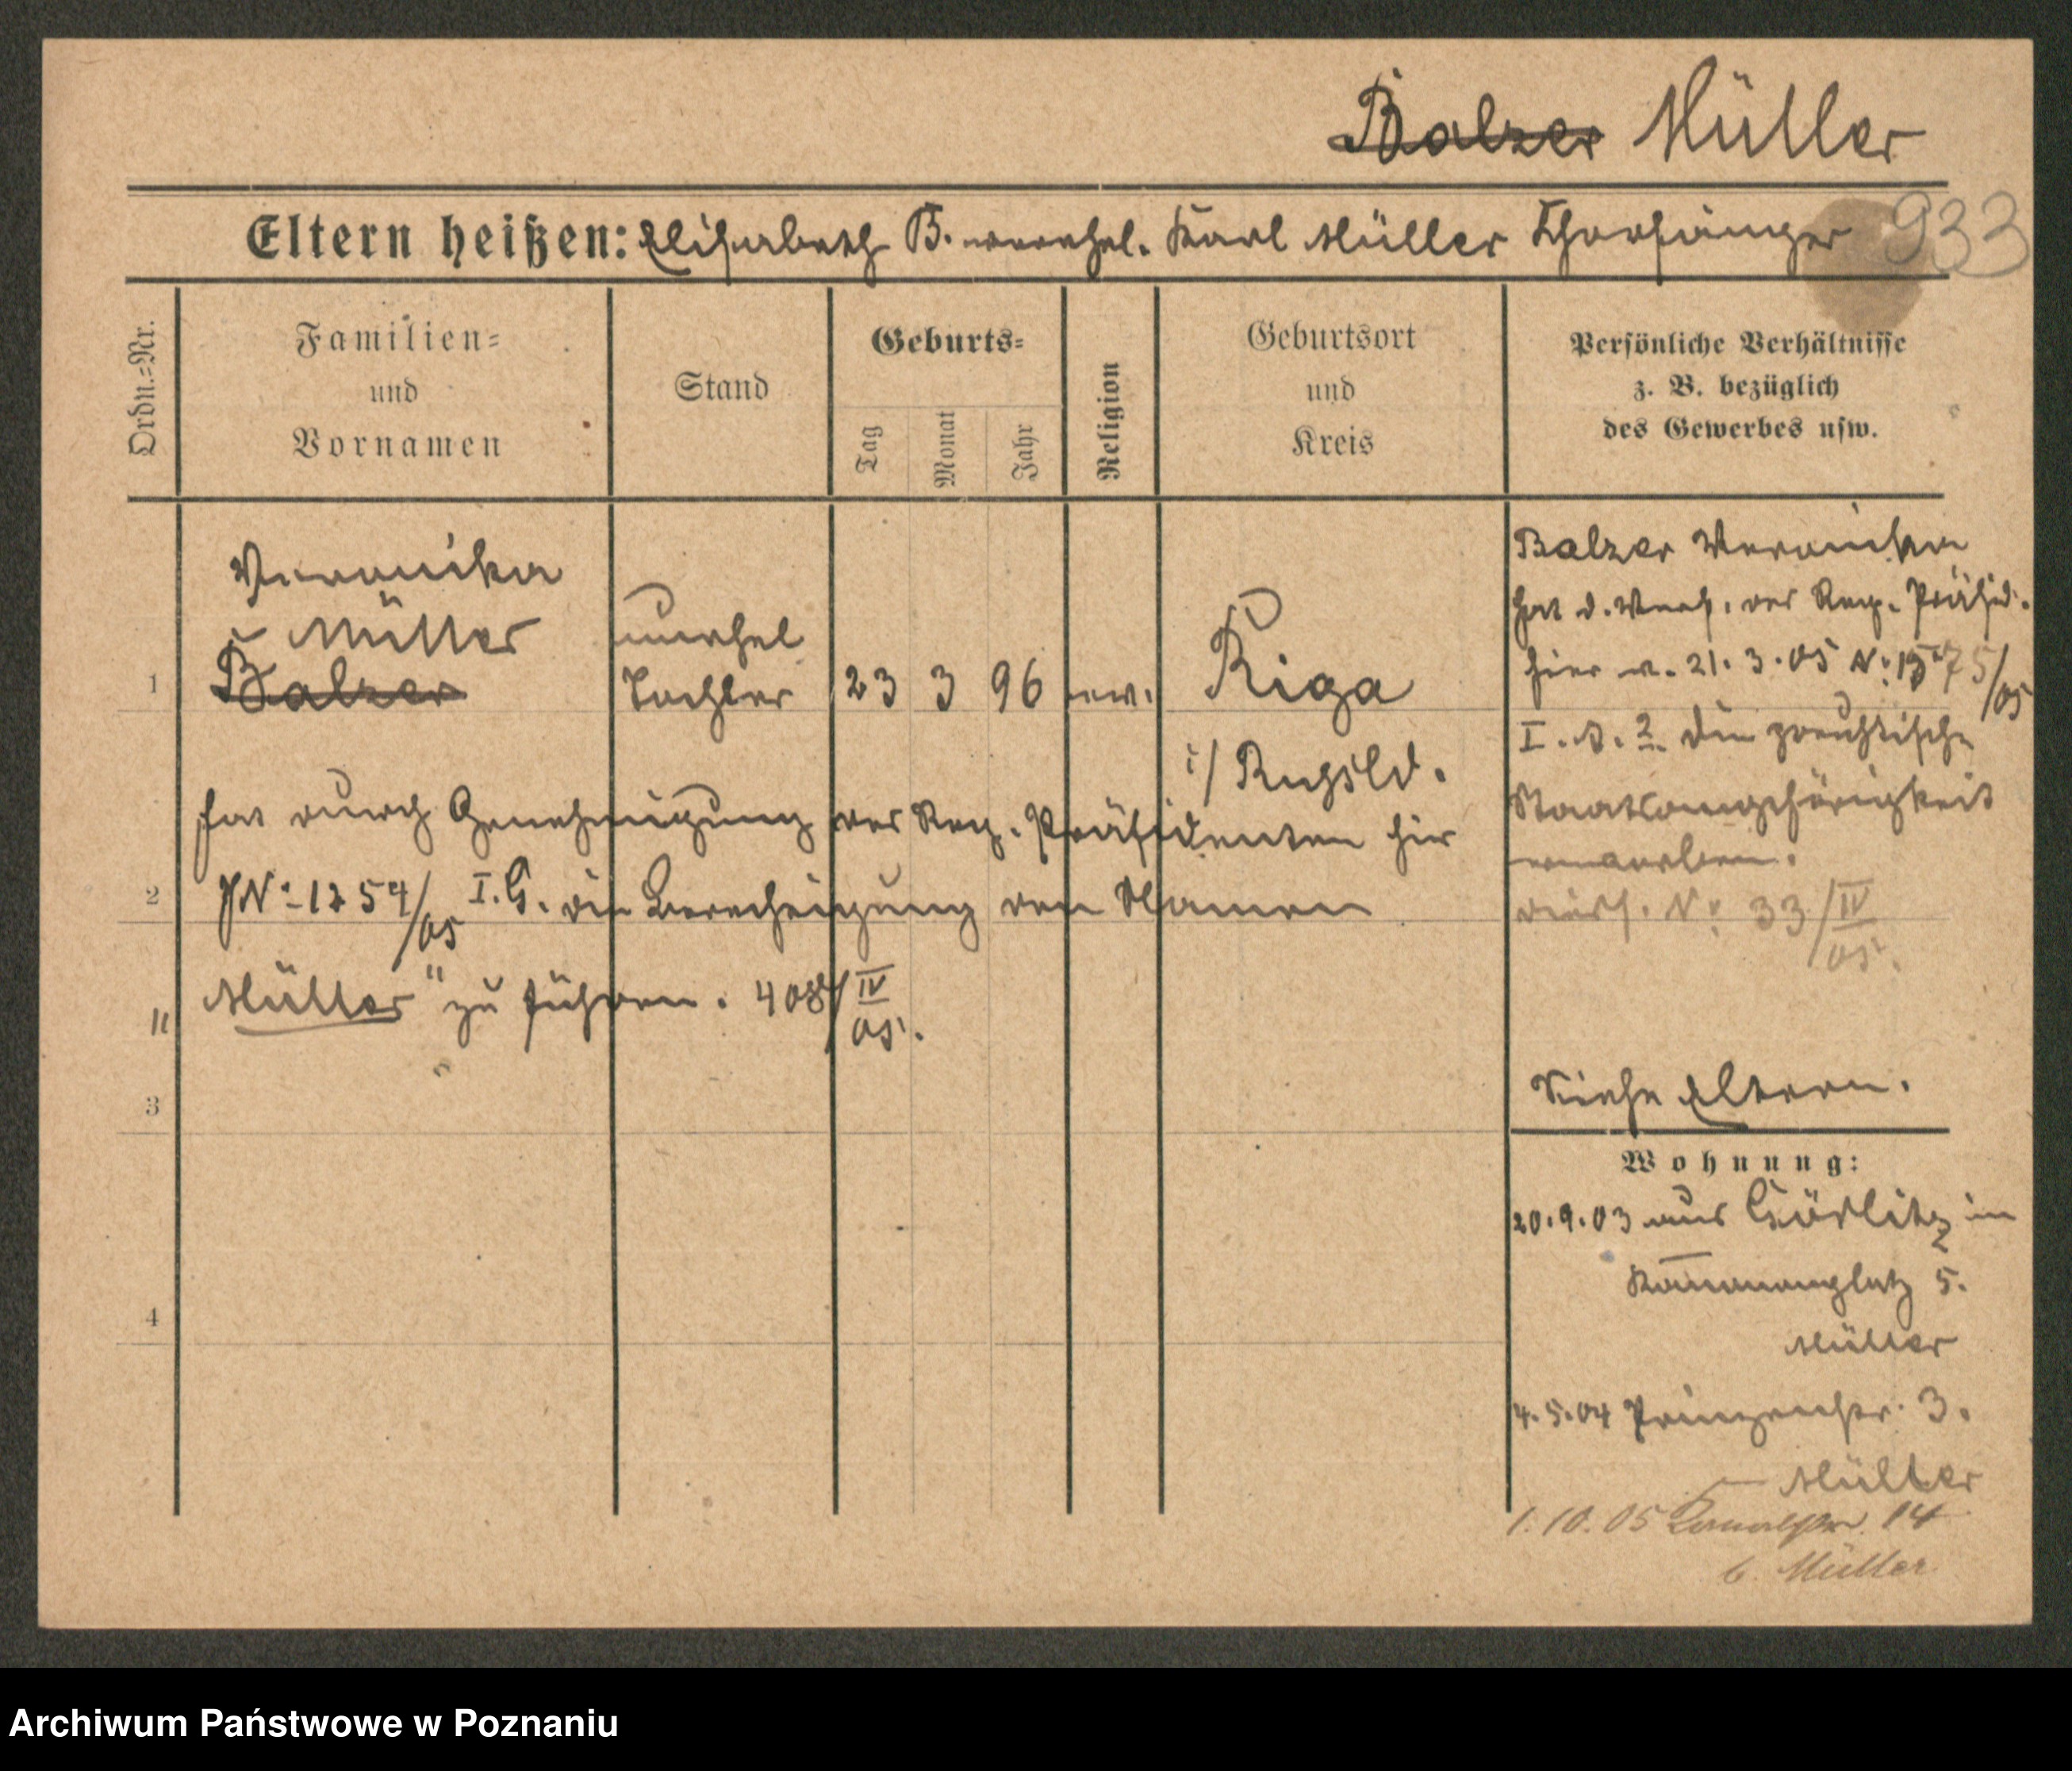 Balzer Müller
933
Eltern heißen: Elisabeth B. verehel. Karl Müller Chorsänger
Ordn.-Nr.
Familien-
und
Vornamen
Stand
Geburts-
Tag
Monat
Jahr
Religion
Geburtsort
und
Kreis
Persönliche Verhältnisse
z. B. bezüglich
des Gewerbes usw.
Veronika
Müller
Balzer
unehel
Tochter
1
23 3 96 ew.
Riga
i/ Rußld.
hat durch Genehmigung des Reg. Präsidenten hier
2
JN: 1254/05 I.G. die Berechtigung den Namen
Müller" zu führen. 408/IV
05.
3
4
Balzer Veronika
hat d. Verf. des Reg. Präsid.
hier v. 21.3.05 N: 1575/05
I. A. 2. die preußische
Staatsangehörigkeit
erworben.
N: 33/IV
05.
Siehe Eltern.
Wohnung:
20.9.03 aus Görlitz in
5.
Müller
4.5.04 Prinzenstr. 3.
Müller
1.10.05 Kanalstr. 14
b. Müller
Archiwum Państwowe w Poznaniu